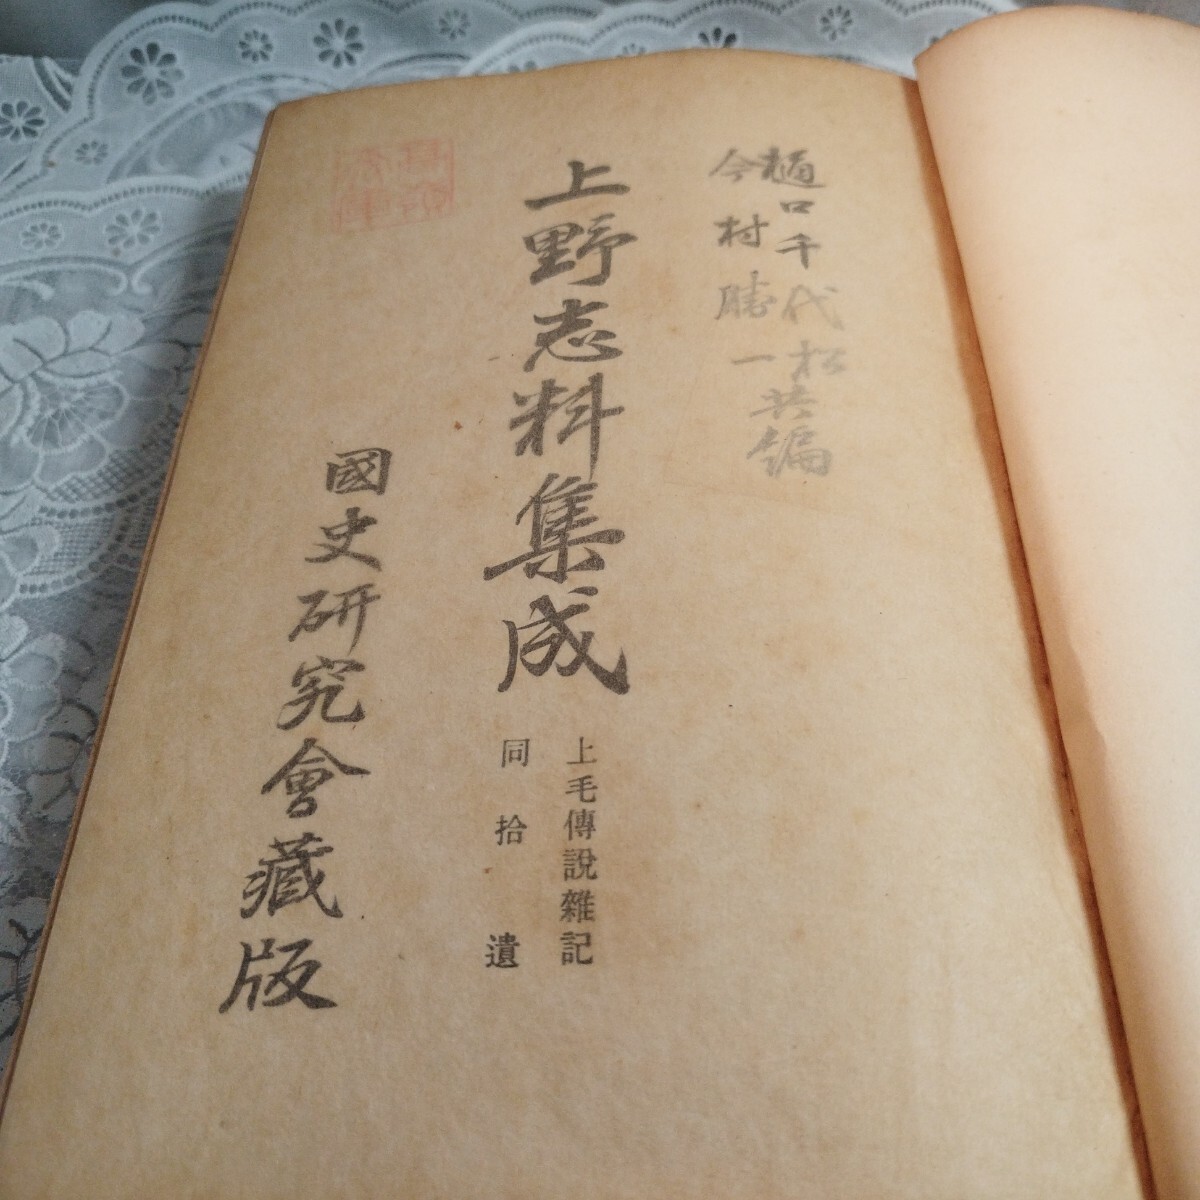 樋口千代松
今村勝一共編
上野志料集成
上毛傳說雜記
同拾遺
國史研究會藏版